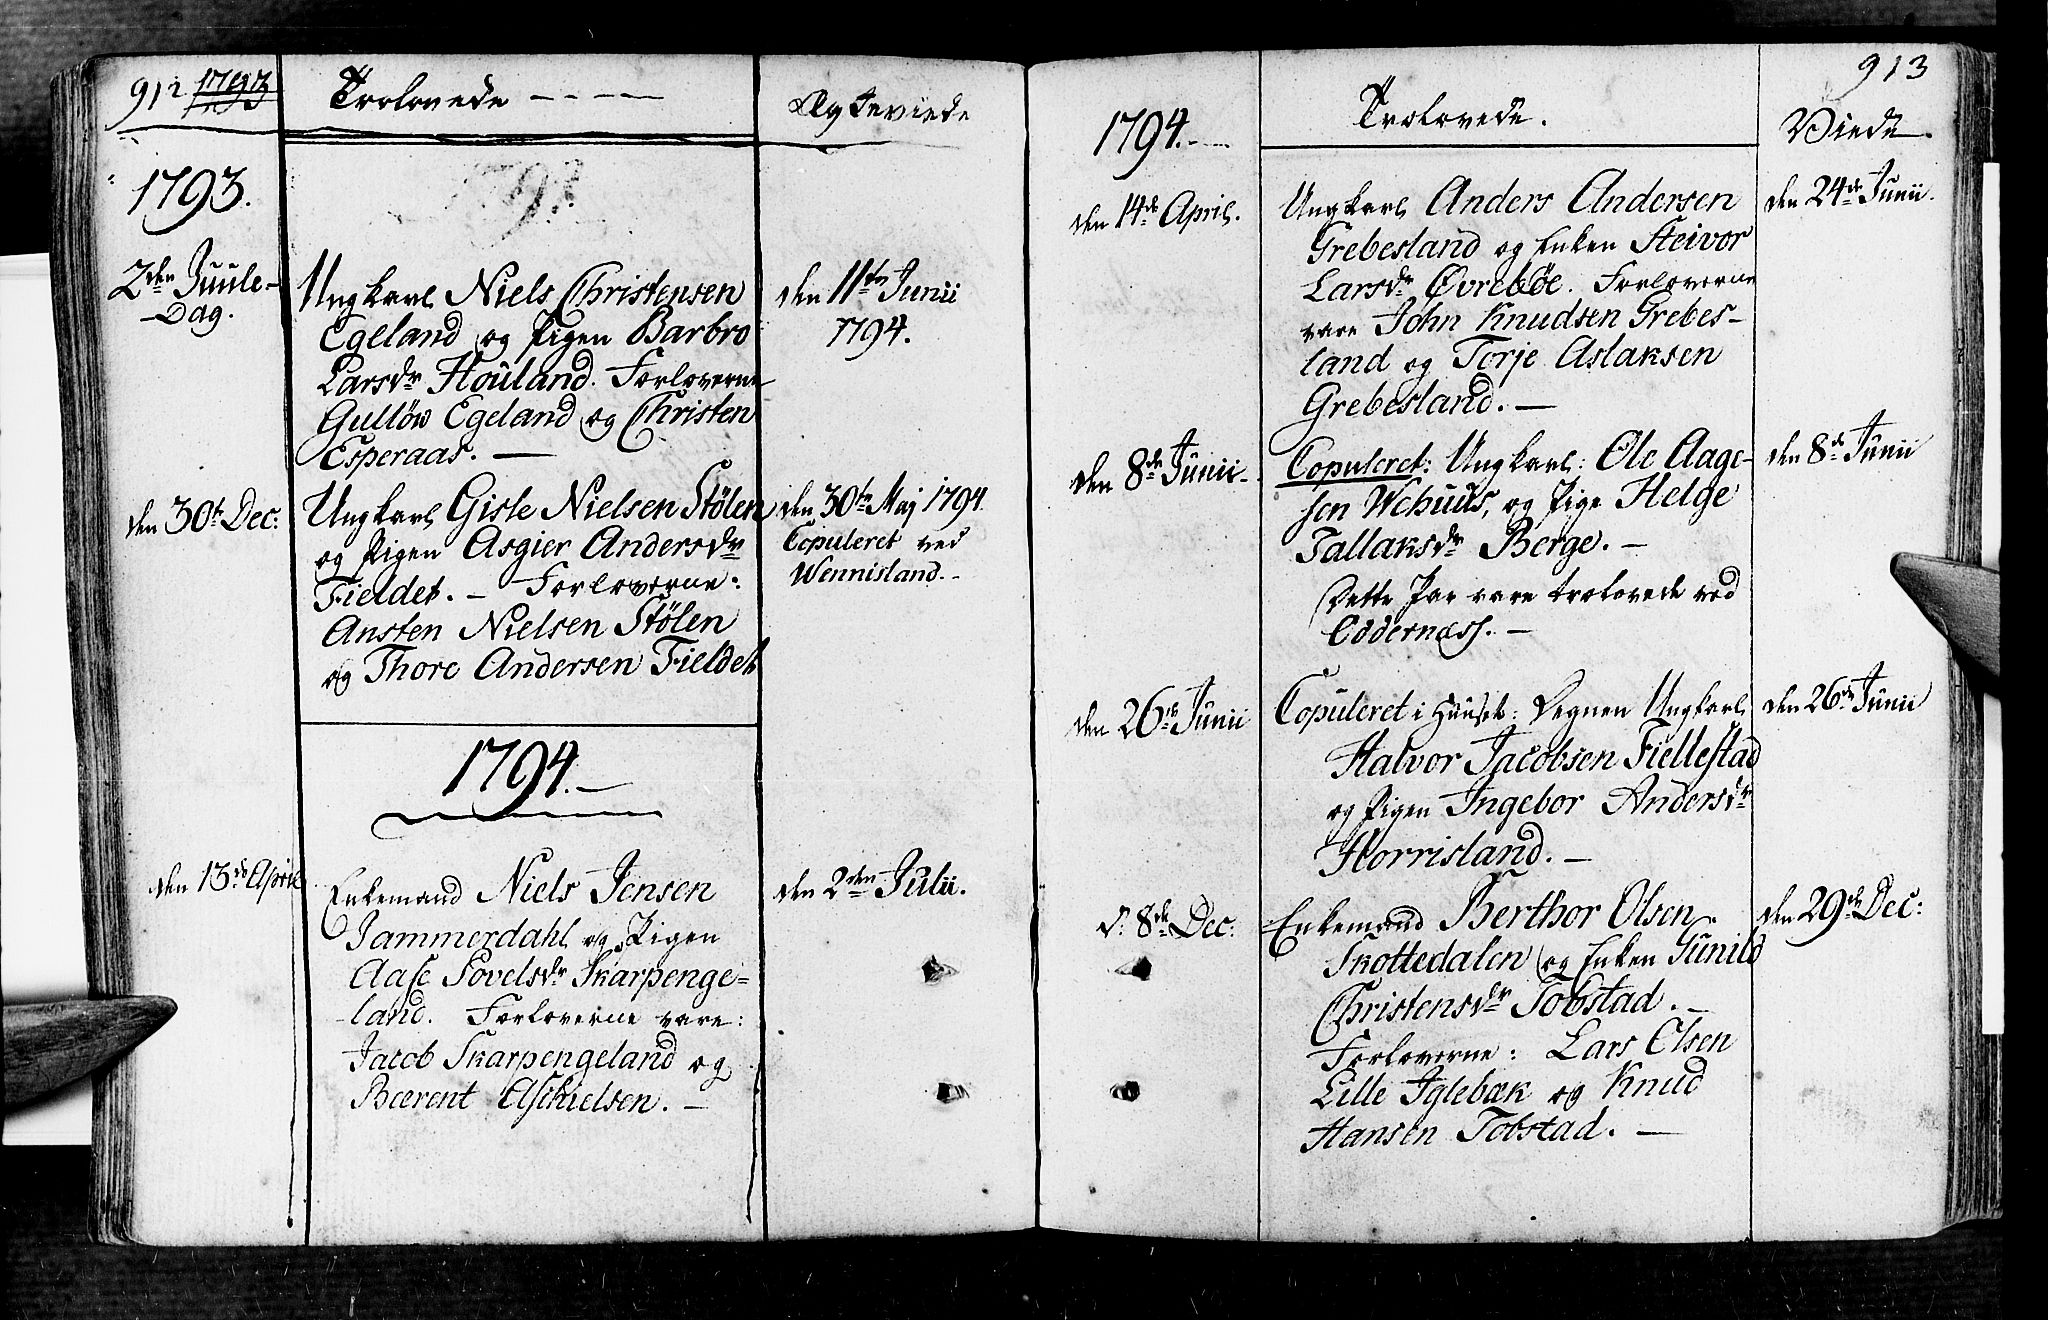 912 1793
Trolovede - - - -
Ægteviede
1793.
2den Juule-
Dag.
Ungkarl Niels Christensen
Egeland og Pigen Barbro
Larsdr Houland. Forloverne
Gulløw Egeland og Christen
Esperaas. —
den 11te Junii
1794.
den 30te Dec:
Ungkarl Gisle Nielsen Stølen
og Pigen Asgier Andersdr
Fieldet. - Forloverne:
Ansten Nielsen Stølen
og Thore Andersen Fieldet
den 30te Maj 1794.
Copuleret ved
Wennisland. -
1794. —
den 13de April
Enkemand Niels Jensen
Jammerdahl og Pigen
Aase Sovelsdr Skarpenge=
land. Forloverne vare:
Jacob Skarpengeland og
Bærent Aschielsen. —
den 2den Julii.
913
1794. -
Trolovede.
Viede.
den 14de April.
Ungkarl Anders Andersen
Grebesland og Enken Steivor
Larsdr Øvrebøe. Forloverne
vare John Knudsen Grebes-
land og Torje Aslaksen
Grebesland. —
den 24de Junii.
den 8de Junii -
Copuleret: Ungkarl: Ole Aage-
sen Wehuus, og Pige Helge
Tallaksdr Berge. -
Dette Par vare trolovede ved
Oddernæss. -
den 8de Junii
den 26de Junii
Copuleret i Huuset: Degnen Ungkarl
Halvor Jacobsen Fiellestad
og Pigen Ingebor Andersdr
Horrisland. -
den 26de Junii
d: 8de Dec:
Enkemand Berthor Olsen
Skottedalen og Enken Gunild
Christensdr Tobstad. -
Forloverne: Lars Olsen
Lille Iglebæk og Knud
Hansen Tobstad. —
den 29de Dec: